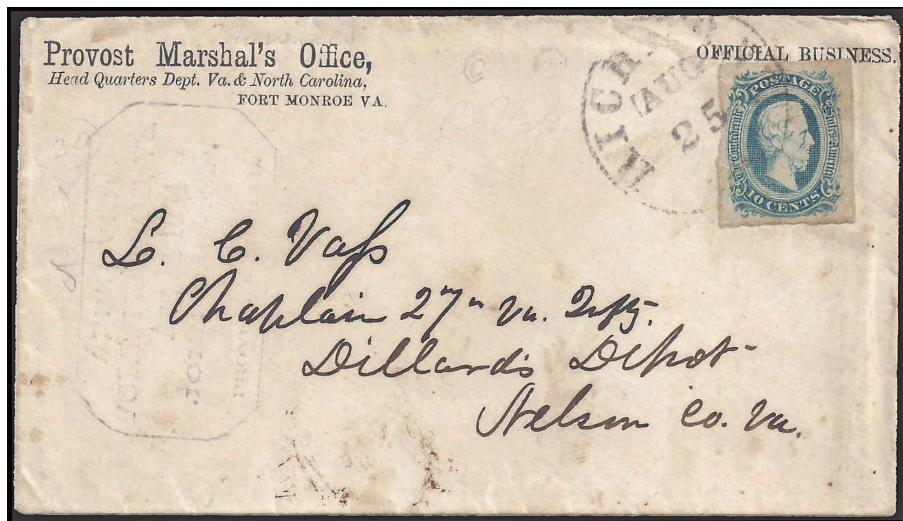 Provost Marshal's Office,
Head Quarters Dept. Va. & North Carolina,
FORT MONROE VA.
OFFICIAL BUSINESS.
AUG
25
POSTAGE
The Confederate States of America
10 CENTS
L. C. Vass
Chaplain 27th Va. Infty.
Dillard's Depot
Nelson Co. Va.